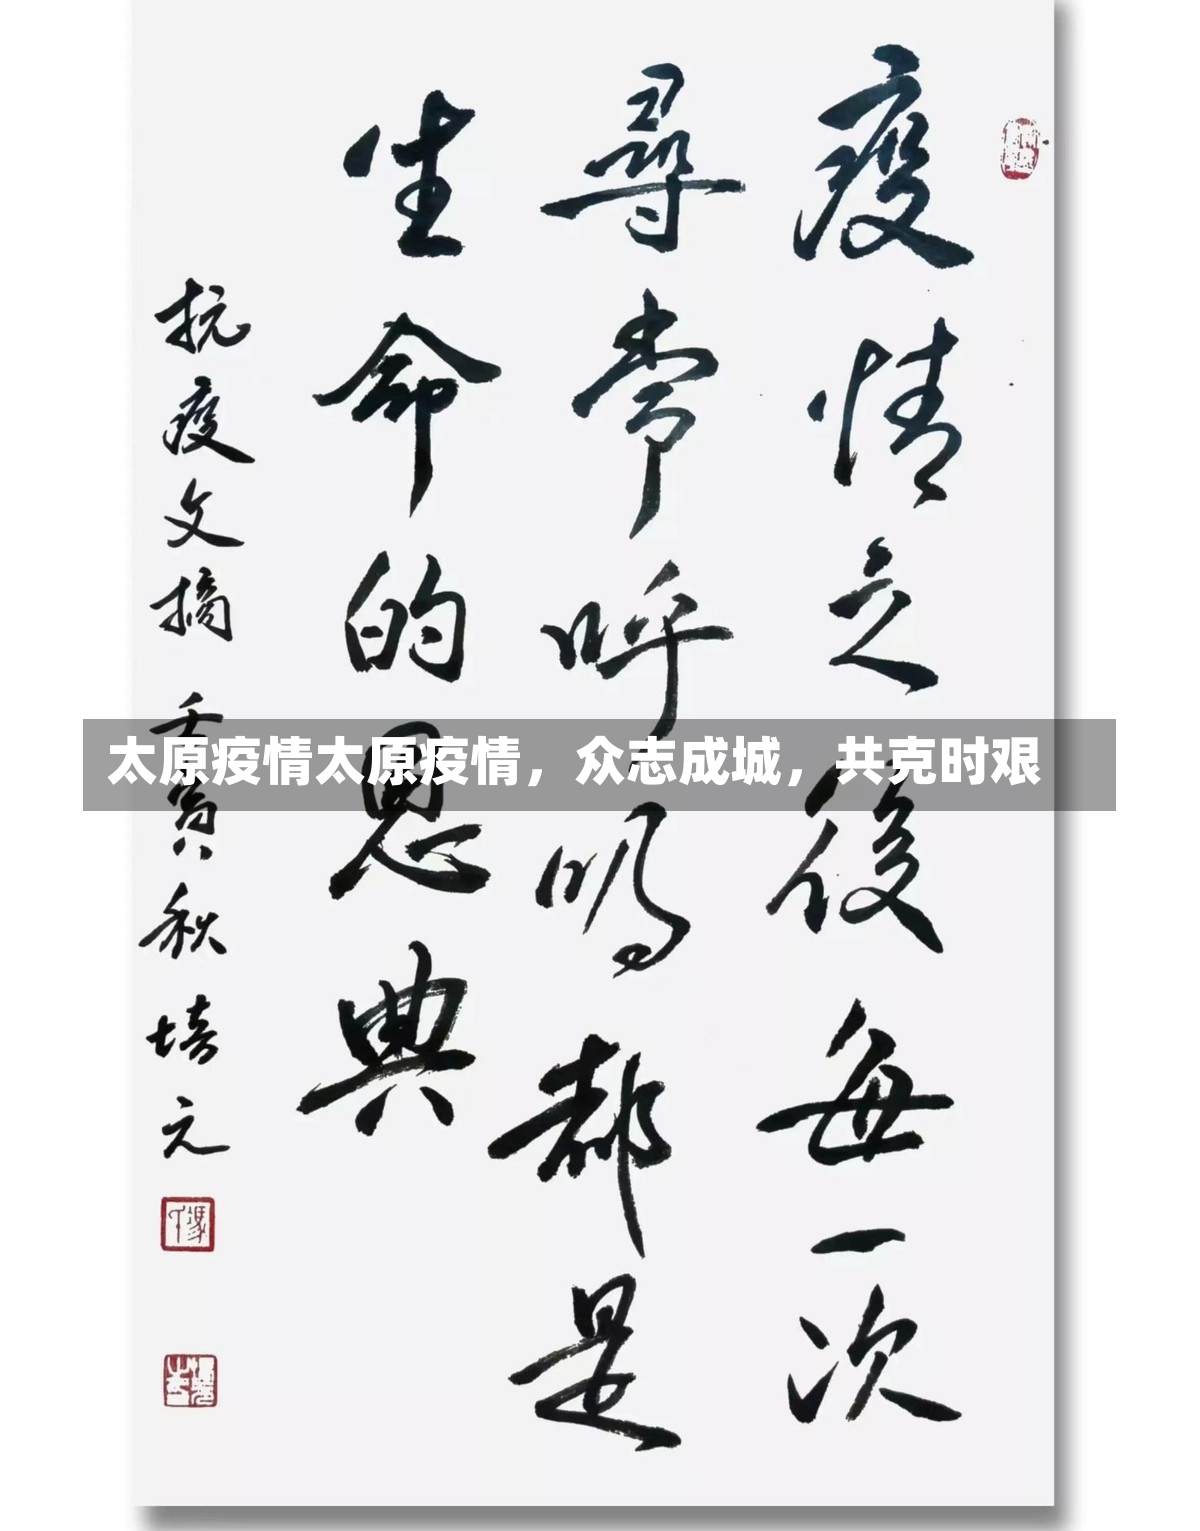 疫情之後每一次
尋常呼吸都是
生命的恩典
抗疫文摘 壬寅秋 培元
太原疫情太原疫情，众志成城，共克时艰